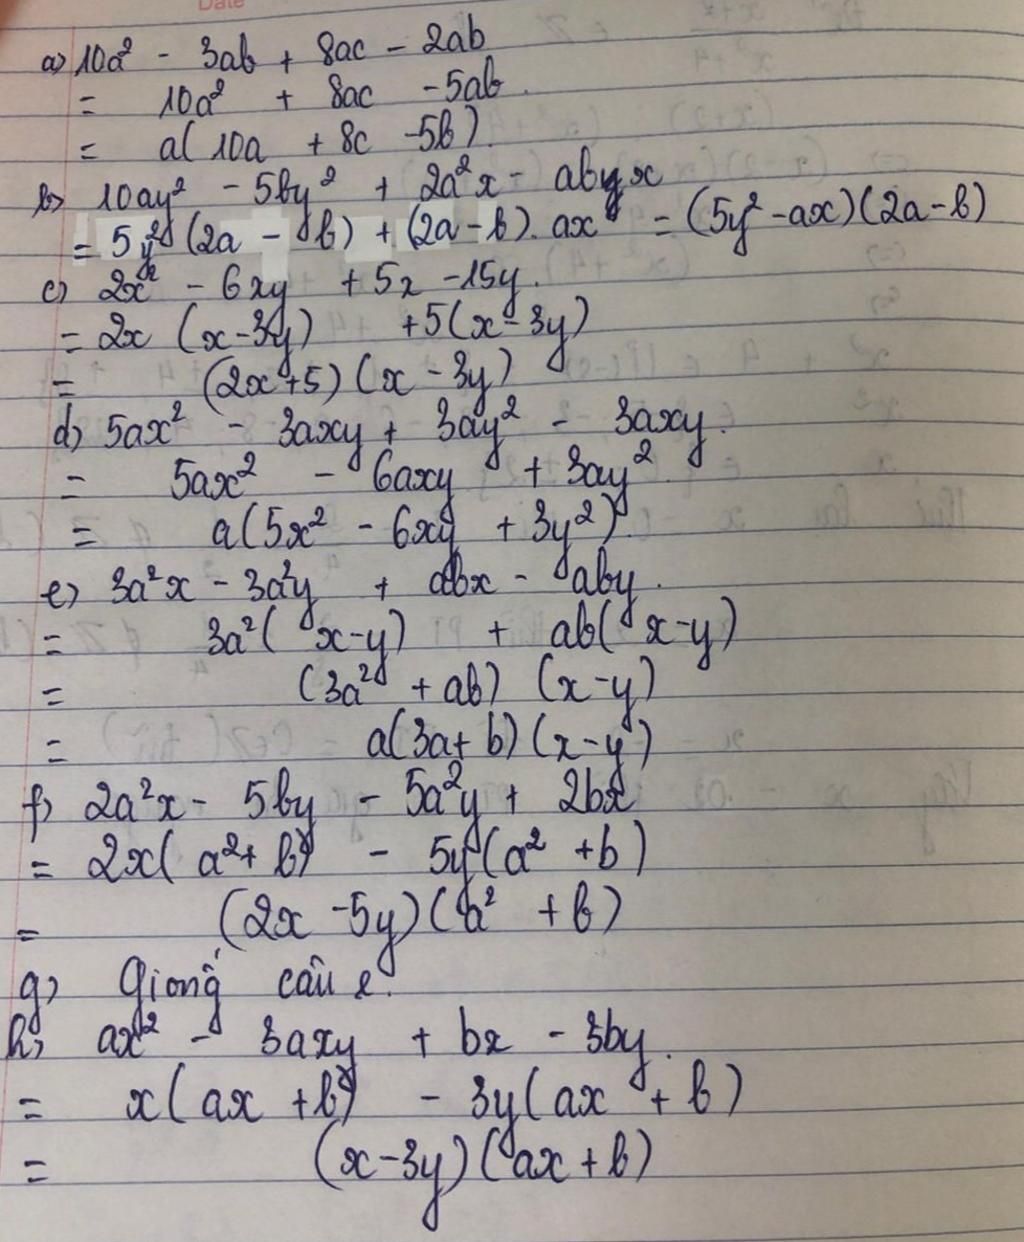 Date
a) 10a² - 3ab + 8ac - 2ab
= 10a² + 8ac - 5ab.
= a( 10a + 8c - 5b)
b) 10ay² - 5by² + 2a²x - abyx
= 5y² (2a - b) + (2a - b). ax = (5y² - ax)(2a - b)
c) 2x² - 6xy + 5x - 15y.
= 2x (x - 3y) + 5(x - 3y)
= (2x + 5) (x - 3y)
d) 5ax² - 3axy + 3ay² - 3axy.
= 5ax² - 6axy + 3ay²
= a(5x² - 6xy + 3y²)
e) 3a²x - 3a²y + abx - aby.
= 3a²( x - y) + ab( x - y)
= (3a² + ab) (x - y)
= a(3a + b) (x - y)
f) 2a²x - 5by - 5a²y + 2bx
= 2x( a² + b) - 5y(a² + b)
= (2x - 5y)(a² + b)
g) Giống câu e.
h) ax² - 3axy + bx - 3by.
= x( ax + b) - 3y( ax + b)
= (x - 3y)(ax + b)